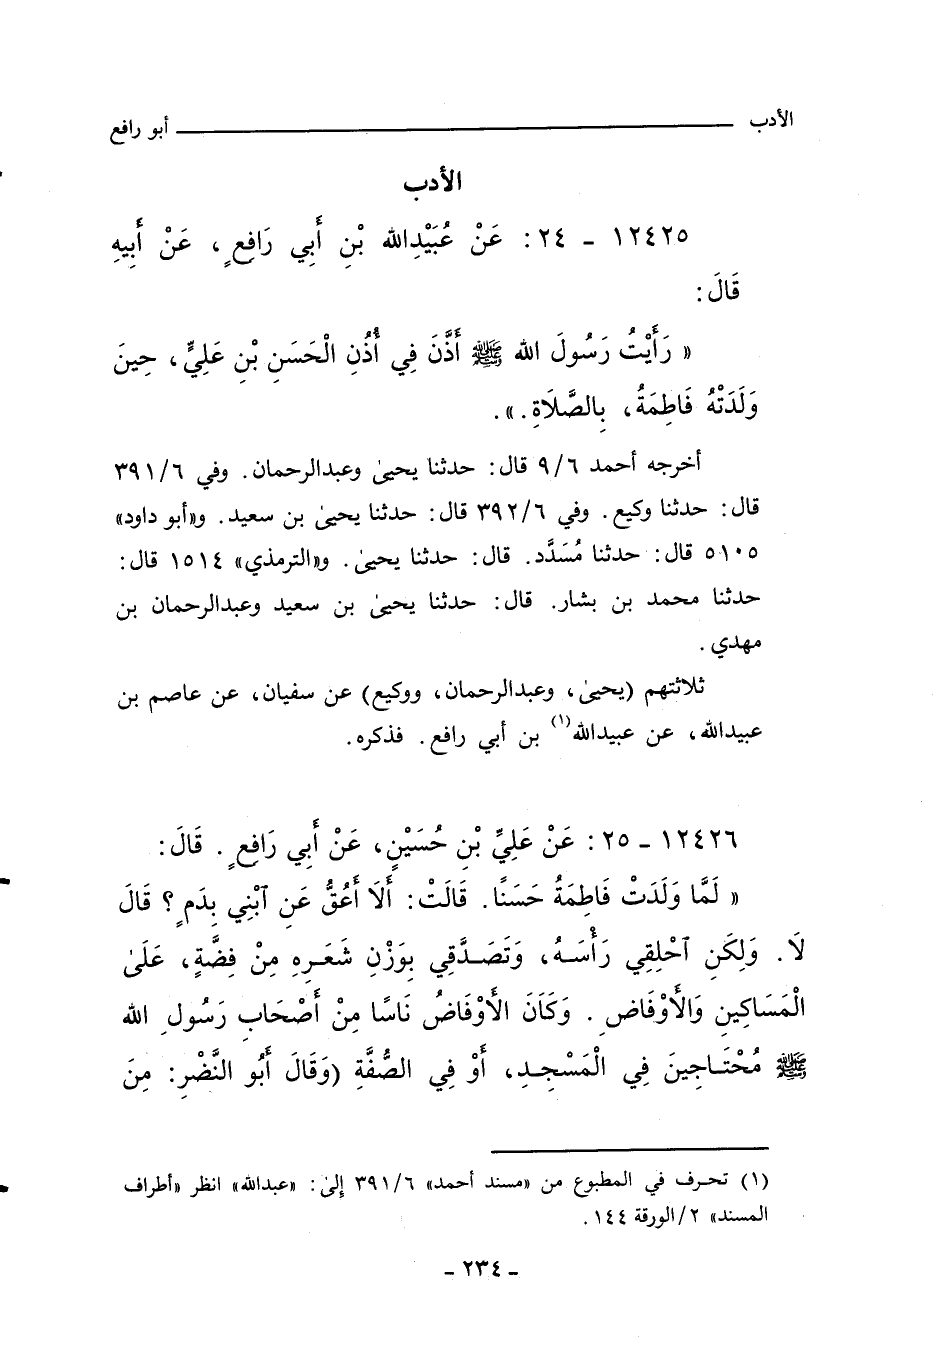 الأدب ـــــــــ أبو رافع
الأدب
١٢٤٢٥ - ٢٤ : عَنْ عُبَيْدِالله بْنِ أَبِي رَافِعٍ ، عَنْ أَبِيهِ
قَالَ :
« رَأَيْتُ رَسُولَ الله ﷺ أَذَّنَ فِي أُذُنِ الْحَسَنِ بْنِ عَلِيٍّ ، حِينَ
وَلَدَتْهُ فَاطِمَةُ ، بِالصَّلَاةِ . » .
أخرجه أحمد ٩/٦ قال : حدثنا يحيىٰ وعبدالرحمان . وفي ٣٩١/٦
قال : حدثنا وكيع . وفي ٣٩٢/٦ قال : حدثنا يحيىٰ بن سعيد . و«أبو داود»
٥١٠٥ قال : حدثنا مُسَدَّد . قال : حدثنا يحيىٰ . و«الترمذي» ١٥١٤ قال :
حدثنا محمد بن بشار . قال : حدثنا يحيىٰ بن سعيد وعبدالرحمان بن
مهدي .
ثلاثتهم (يحيىٰ ، وعبدالرحمان ، ووكيع) عن سفيان ، عن عاصم بن
عبيدالله ، عن عبيدالله(١) بن أبي رافع . فذكره .
١٢٤٢٦ - ٢٥ : عَنْ عَلِيِّ بْنِ حُسَيْنٍ ، عَنْ أَبِي رَافِعٍ . قَالَ :
« لَمَّا وَلَدَتْ فَاطِمَةُ حَسَنًا . قَالَتْ : أَلَا أَعُقُّ عَنِ آبْنِي بِدَمٍ ؟ قَالَ
لَا . وَلٰكِنِ آحْلِقِي رَأْسَهُ ، وَتَصَدَّقِي بِوَزْنِ شَعَرِهِ مِنْ فِضَّةٍ ، عَلَىٰ
الْمَسَاكِينِ وَالْأَوْفَاضِ . وَكَانَ الْأَوْفَاضُ نَاسًا مِنْ أَصْحَابِ رَسُولِ الله
ﷺ مُحْتَاجِينَ فِي الْمَسْجِدِ ، أَوْ فِي الصُّفَّةِ (وَقَالَ أَبُو النَّضْرِ : مِنَ
(١) تحرف في المطبوع من «مسند أحمد» ٣٩١/٦ إلىٰ : «عبدالله» انظر «أطراف
المسند» ٢/الورقة ١٤٤ .
- ٢٣٤ -